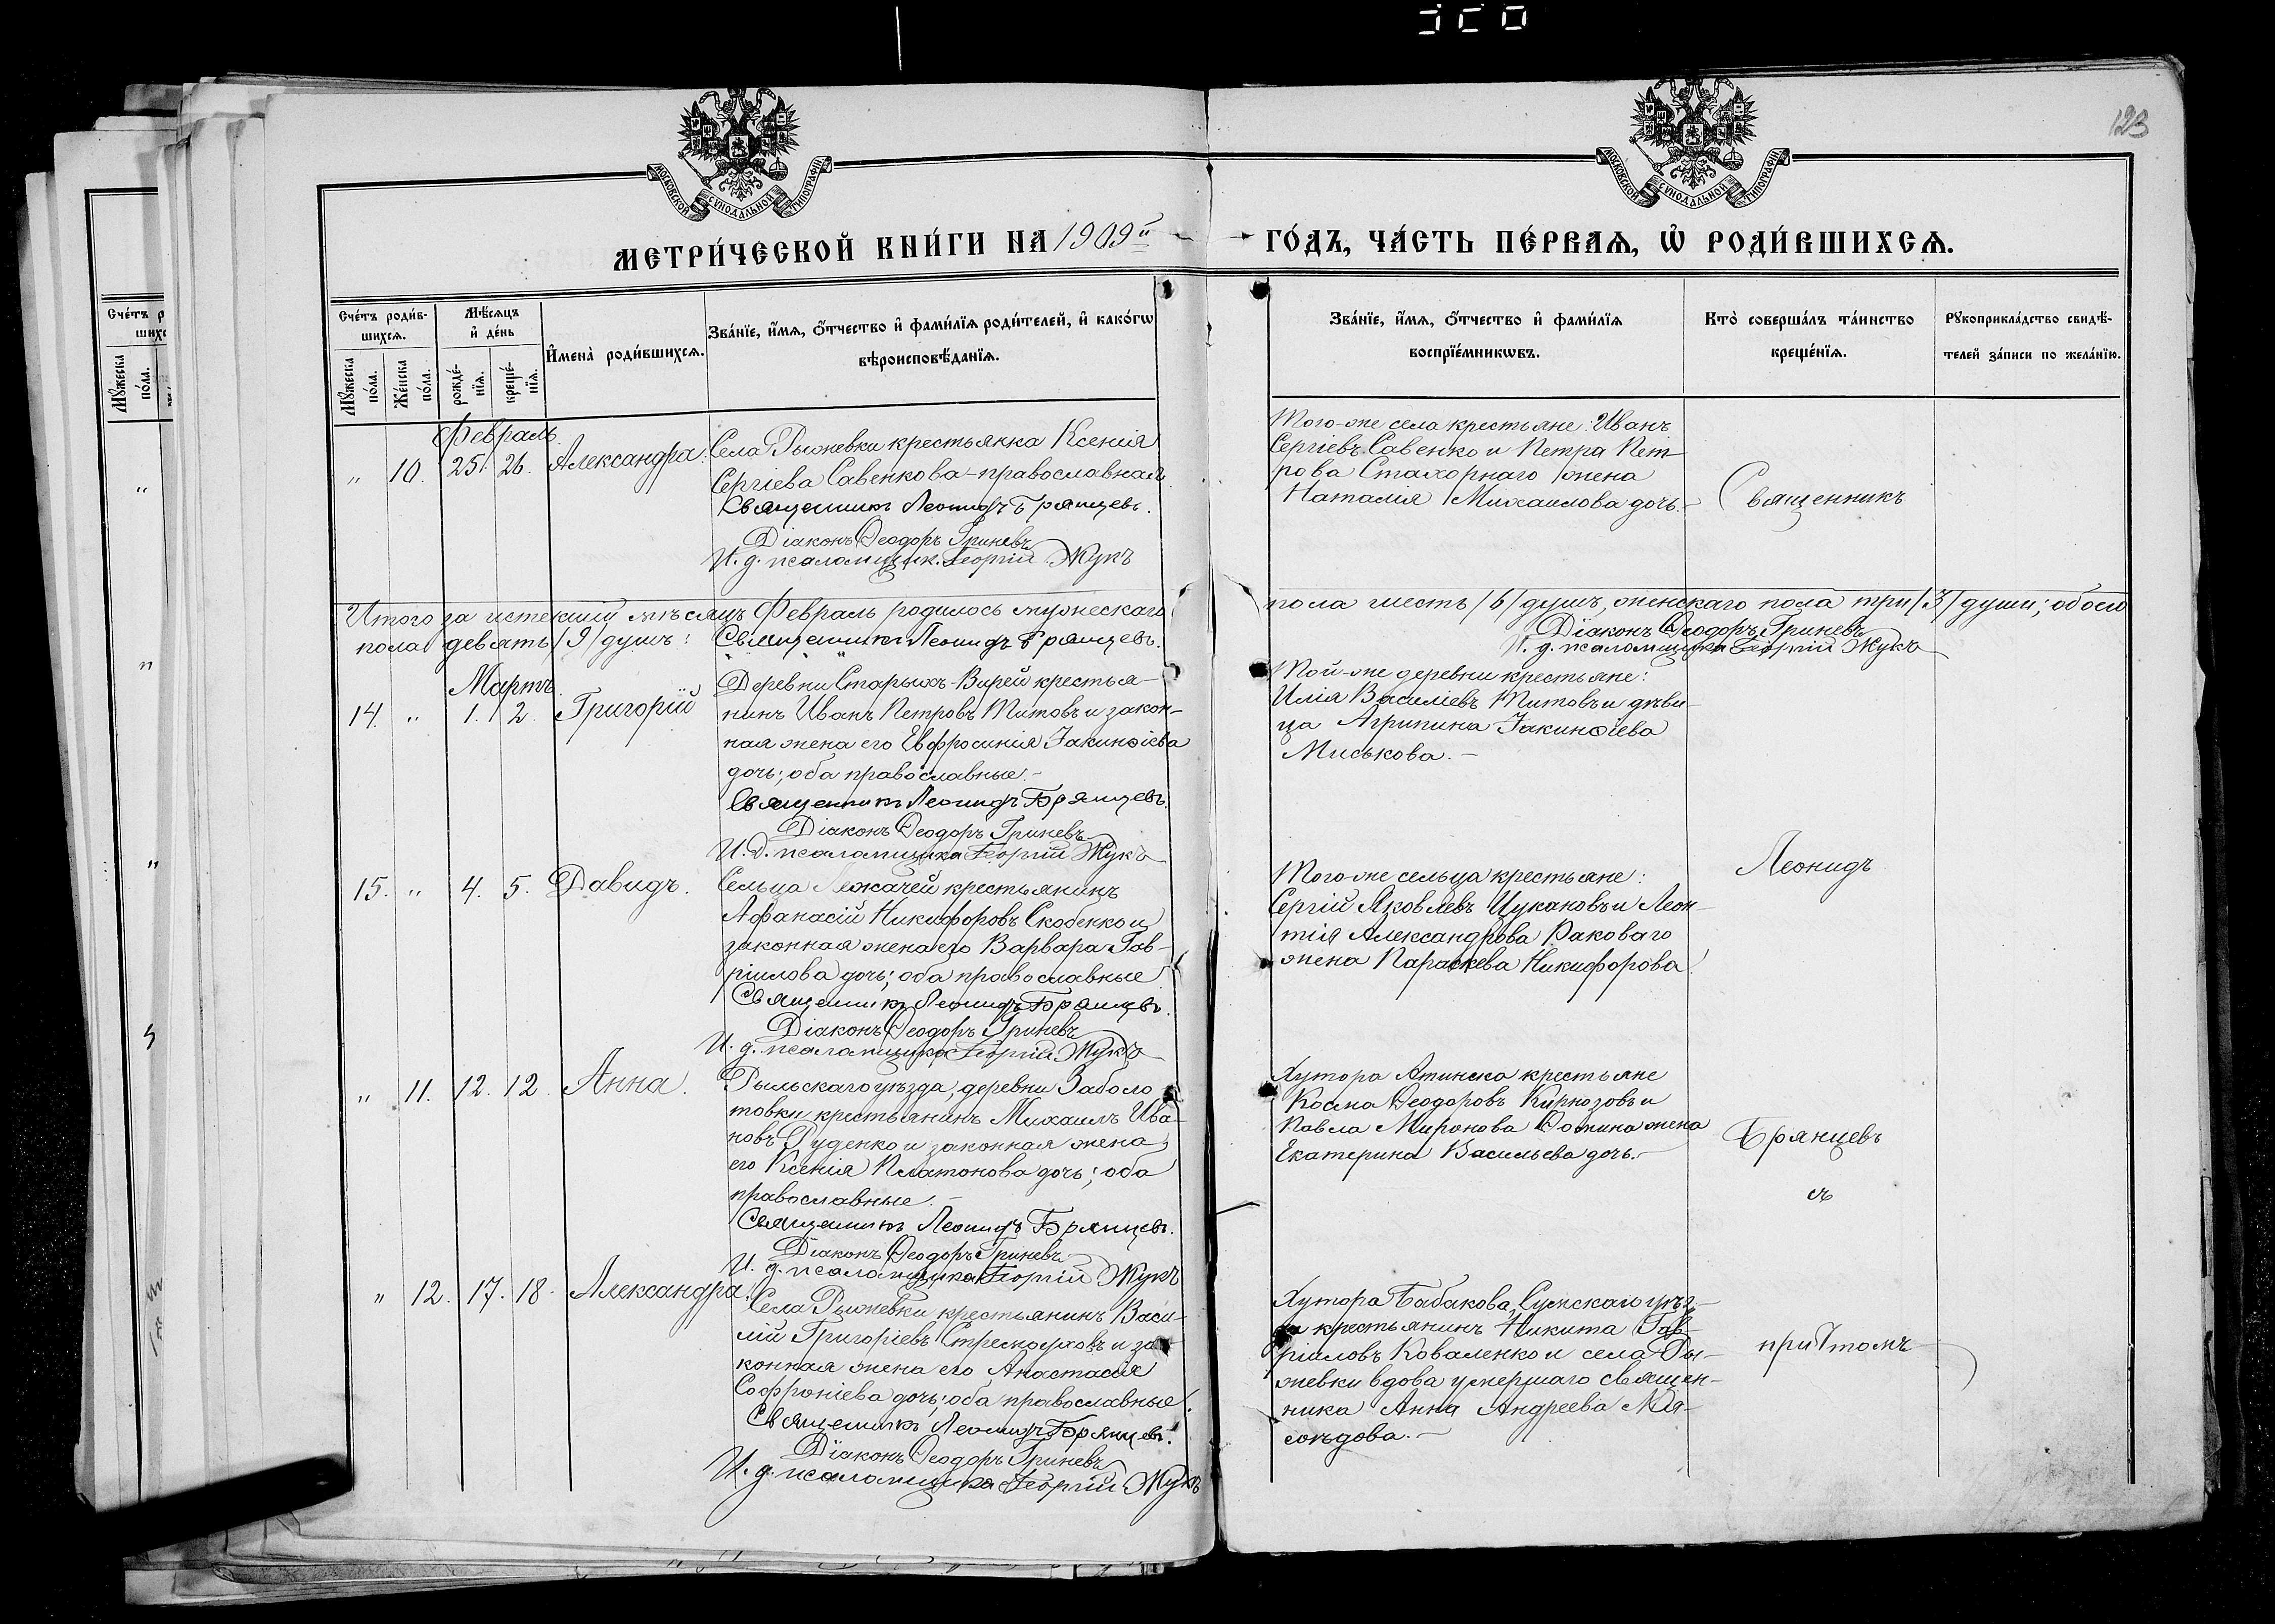 123
МОСКОВСКОЙ СѴНОДАЛЬНОЙ ТИПОГРАФІИ
МОСКОВСКОЙ СѴНОДАЛЬНОЙ ТИПОГРАФІИ
МЕТРИ́ЧЕСКОЙ КНИ́ГИ НА 1909й
ГО́ДЪ, ЧА́СТЬ ПЕ́РВАѦ, Ѡ҆ РОДИ́ВШИХСѦ.
Сче́тъ роди́в-
шихсѧ.
Мꙋ́жеска
по́ла.
Же́нска
по́ла.
Мѣ́сѧцъ
и҆ де́нь
рожде́-
нїѧ.
креще́-
нїѧ.
И҆мена̀ роди́вшихсѧ.
Зва́нїе, и҆́мѧ, ѻ҆́тчество и҆ фами́лїѧ роди́телей, и҆ како́гѡ
вѣроисповѣ́данїѧ.
Зва́нїе, и҆́мѧ, ѻ҆́тчество и҆ фами́лїѧ
воспрїе́мникѡвъ.
Кто̀ соверша́лъ та́инство
креще́нїѧ.
Рꙋкоприкла́дство свидѣ́-
телей за́писи по жела́нїю.
Февраль.
" 10. 25. 26. Александра.
Села Рыжевки крестьянка Ксенія
Сергіева Савенкова - православная
Священникъ Леонидъ Брянцевъ.
Діаконъ Ѳеодоръ Гриневъ
И. д. псаломщик. Георгій Жукъ
Того-же села крестьяне: Иванъ
Сергіевъ Савенко и Петра Пет-
рова Стахорнаго жена
Наталія Михаилова дочь. -
Священникъ
Итого за истекшій мѣсяцъ Февраль родилось мужескаго
пола шесть /6/ душъ, женскаго пола три /3/ души; обоего
пола девять /9/ душъ: Священникъ Леонидъ Брянцевъ.
Діаконъ Ѳеодоръ Гриневъ
И. д. псаломщика Георгій Жукъ
Мартъ.
14. " 1. 2. Григорій
Деревни Старыхъ-Вирей крестья-
нинъ Иванъ Петровъ Титовъ и закон-
ная жена его Евфросинія Іакинѳіева
дочь; оба православные. -
Священникъ Леонидъ Брянцевъ.
Діаконъ Ѳеодоръ Гриневъ
И. д. псаломщика Георгій Жукъ
Той-же деревни крестьяне:
Илія Василіевъ Титовъ и дѣви-
ца Агрипина Іакинѳіева
Миськова. -
15. " 4. 5. Давидъ.
Сельца Лежачей крестьянинъ
Афанасій Никифоровъ Скобенко и
законная жена его Варвара Гав-
ріилова дочь; оба православные.
Священникъ Леонидъ Брянцевъ.
Діаконъ Ѳеодоръ Гриневъ
И. д. псаломщика Георгій Жукъ
Того-же сельца крестьяне:
Сергій Яковлевъ Цукановъ и Леон-
тія Александрова Раковаго
жена Параскева Никифорова.
Леонидъ
" 11. 12. 12. Анна.
Рыльскаго уѣзда, деревни Заболо-
товки крестьянинъ Михаилъ Ива-
новъ Руденко и законная жена
его Ксенія Платонова дочь; оба
православные. -
Священникъ Леонидъ Брянцевъ.
Діаконъ Ѳеодоръ Гриневъ
И. д. псаломщика Георгій Жукъ
Хутора Атинска крестьяне
Косма Ѳеодоровъ Кирнозовъ и
Павла Миронова жена
Екатерина Васильева дочь. -
Брянцевъ
съ
" 12. 17. 18. Александра.
Села Рыжевки крестьянинъ Васи-
лій Григоріевъ Стремоуховъ и за-
конная жена его Анастасія
Софроніева дочь; оба православные.
Священникъ Леонидъ Брянцевъ.
Діаконъ Ѳеодоръ Гриневъ
И. д. псаломщика Георгій Жукъ
Хутора Бабакова, Сумскаго уѣз-
да крестьянинъ Никита Гав-
ріиловъ Коваленко и села Ры-
жевки вдова умершаго священ-
ника Анна Андреева Мя-
соѣдова. -
причтомъ